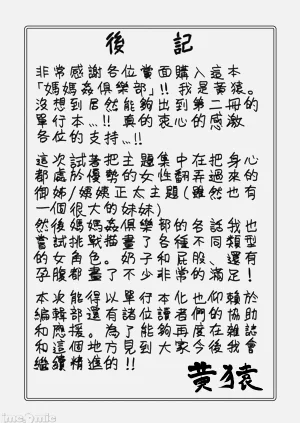 後記
非常感謝各位賞面購入這本
「媽媽姦俱樂部」!! 我是黃猿。
沒想到居然能夠出到第二冊的
單行本…!! 真的衷心的感激
各位的支持…!!
這次試著把主題集中在把身心
都處於優勢的女性翻弄過來的
御姊/媽姨正太主題(雖然也有
一個很大的妹妹)
然後媽媽姦俱樂部的各話我也
嘗試挑戰描畫了各種不同類型
的女角色。奶子和屁股、還有
孕腹都畫了不少非常的滿足!
本次能得以單行本化也仰賴於
編輯部還有諸位讀者們的協助
和應援。為了能夠再度在雜誌
和這個地方見到大家今後我會
繼續精進的!!
黃猿